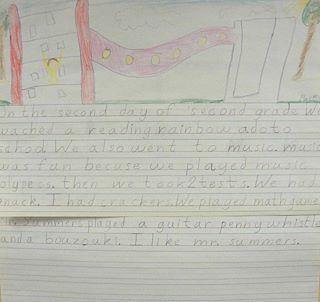 On the second day of second grade we
wached a reading rainbow adoto
schol. We also went to music. music
was fun becuse we played music
olypecs. then we took 2 tests. We had
snack. I had crackers. We played math game
mr. Summers played a guitar pennywhistle
and a bouzouki. I like mr. summers.